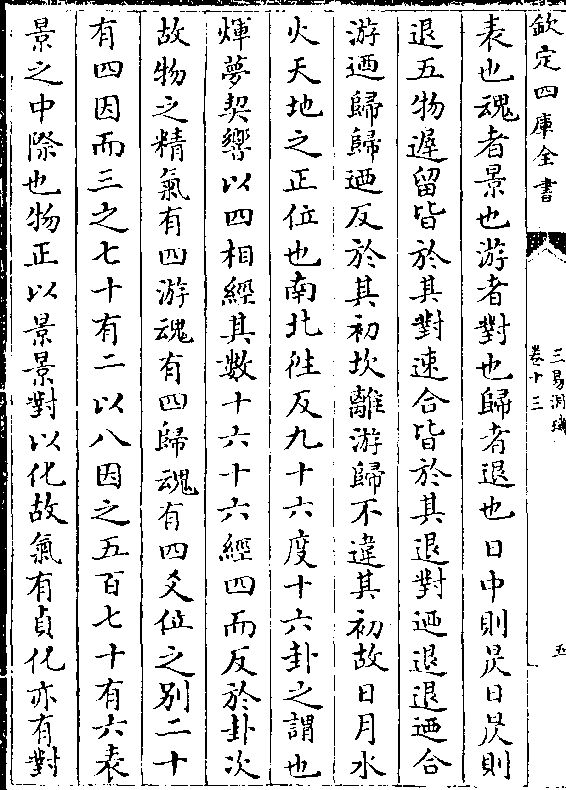 欽定四庫全書
三易洞璣
卷十三
五
表也魂者景也游者對也歸者退也日中則昃日昃則
退五物遲留皆於其對速合皆於其退對廼退退廼合
游廼歸歸廼反於其初坎離游歸不違其初故日月水
火天地之正位也南北徃反九十六度十六卦之謂也
煇夢契嚮以四相經其數十六十六經四而反於卦次
故物之精氣有四游魂有四歸魂有四爻位之別二十
有四因而三之七十有二以八因之五百七十有六表
景之中際也物正以景景對以化故氣有貞化亦有對